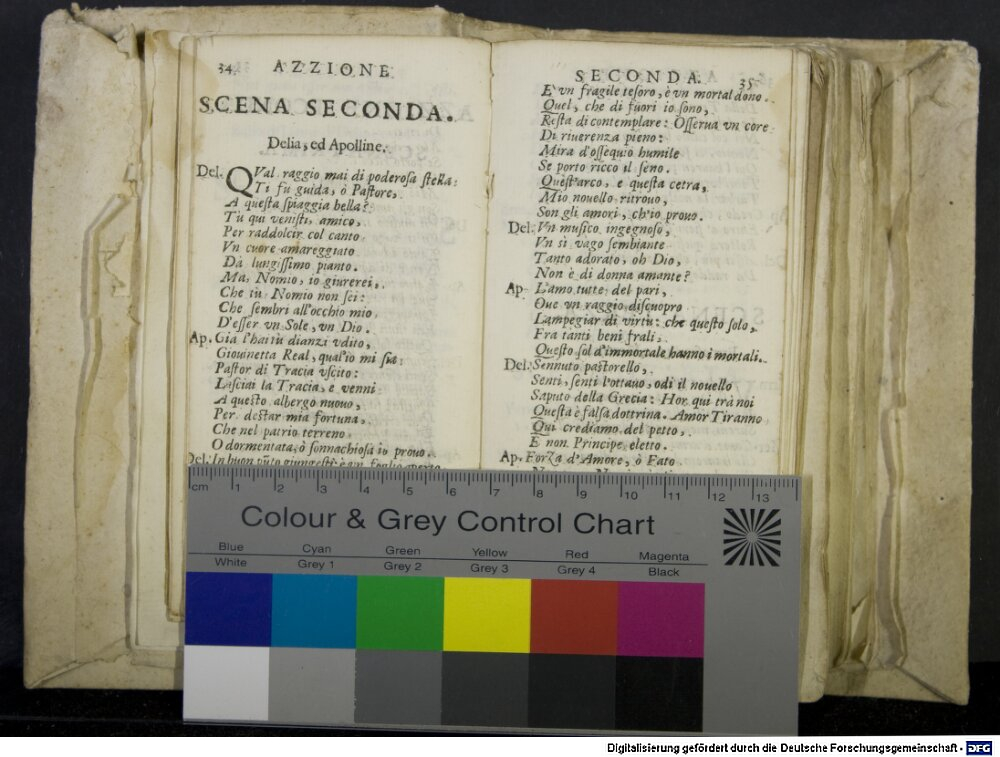 34. AZZIONE
SCENA SECONDA.
Delia, ed Apolline.
Del. QVal raggio mai di poderosa stella:
Ti fu guida, ò Pastore,
A questa spiaggia bella?
Tù qui venisti, amico,
Per raddolcir col canto
Vn cuore amareggiato
Dà lungissimo pianto.
Ma, Nomio, io giurerei,
Che tù Nomio non sei:
Che sembri all'occhio mio,
D'esser vn Sole, vn Dio.
Ap. Già l'hai tù dianzi vdito,
Giouinetta Real, qual'io mi sia:
Pastor di Tracia vscito:
Lasciai la Tracia, e venni
A questo albergo nuouo,
Per destar mia fortuna,
Che nel patrio terreno
O dormentata, ò sonnachiosa io prouo.
Del. In buon
SECONDA. 35
E' vn fragile tesoro, è vn mortal dono.
Quel, che di fuori io sono,
Resta di contemplare: Osserua vn core
Di riuerenza pieno:
Mira d'ossequio humile
Se porto ricco il seno.
Quest'arco, e questa cetra,
Mio nouello ritrouo,
Son gli amori, ch'io prouo.
Del. Vn musico ingegnoso,
Vn si vago sembiante
Tanto adorato, oh Dio,
Non è di donna amante?
Ap. L'amo tutte del pari,
Oue vn raggio discuopro
Lampegiar di virtù: che questo solo,
Fra tanti beni frali,
Questo sol d'immortale hanno i mortali.
Del. Sennuto pastorello,
Senti, senti l'ottauo, odi il nouello
Saputo della Grecia: Hor qui trà noi
Questa è falsa dottrina. Amor Tiranno
Qui crediamo del petto,
E non Principe eletto.
Ap. Forza d'Amore, ò Fato
cm 1 2 3 4 5 6 7 8 9 10 11 12 13
Colour & Grey Control Chart
Blue Cyan Green Yellow Red Magenta
White Grey 1 Grey 2 Grey 3 Grey 4 Black
Digitalisierung gefördert durch die Deutsche Forschungsgemeinschaft - DFG